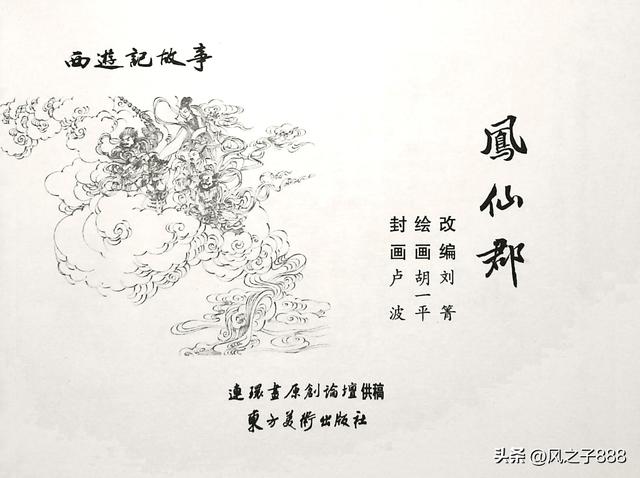 西遊記故事
鳳仙郡
改編刘箐
绘画胡一平
封画卢波
連環畫原創論壇供稿
東方美術出版社
头条 @风之子888